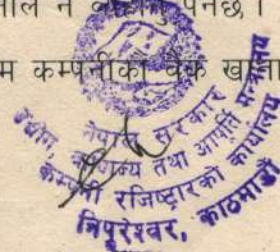 म कम्पनीको बैंक खाता
नेपाल सरकार
उद्योग, वाणिज्य तथा आपूर्ति मन्त्रालय
कम्पनी रजिष्ट्रारको कार्यालय
त्रिपुरेश्वर, काठमाडौं